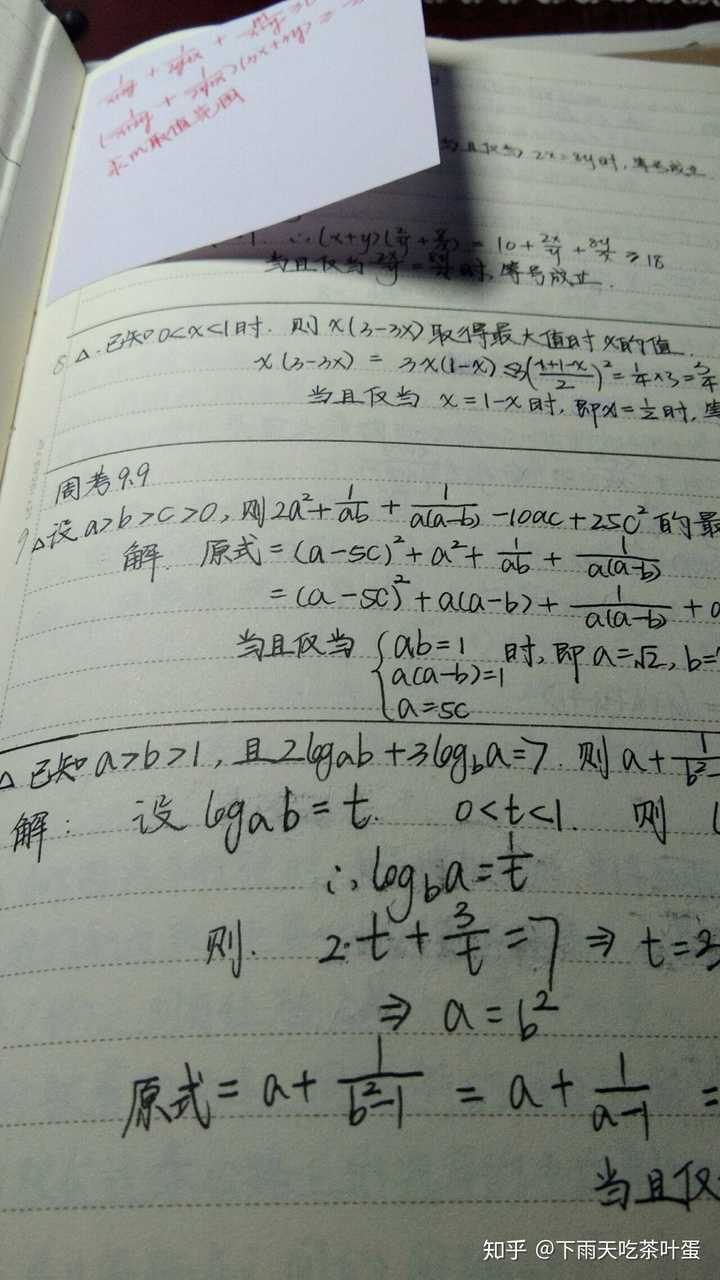 求m取值范围
当且仅当 2x=8y时,等号成立
∴(x+y)( + ) = 10+2x/y+8y/x ≥18
当且仅当 时,等号成立.
8 △.已知0<x<1时.则x(3-3x)取得最大值时x的值.
x(3-3x) = 3x(1-x)≤3((x+1-x)/2)²=1/4×3=3/4
当且仅当 x=1-x时,即x=1/2时,
周考9.9
9△设a>b>c>0,则2a²+1/ab+1/a(a-b)-10ac+25c²的最
解. 原式=(a-5c)²+a²+1/ab+1/a(a-b)
=(a-5c)²+a(a-b)+1/a(a-b)+a
当且仅当{ab=1 时,即a=√2,b=
a(a-b)=1
a=5c
△已知a>b>1,且2logab+3logba=7.则a+1/b²-
解: 设logab=t. 0<t<1. 则
∴logba=1/t
则. 2·t+3/t=7⇒t=
⇒a=b²
原式=a+1/b²-1=a+1/a-1=
当且仅
知乎 @下雨天吃茶叶蛋